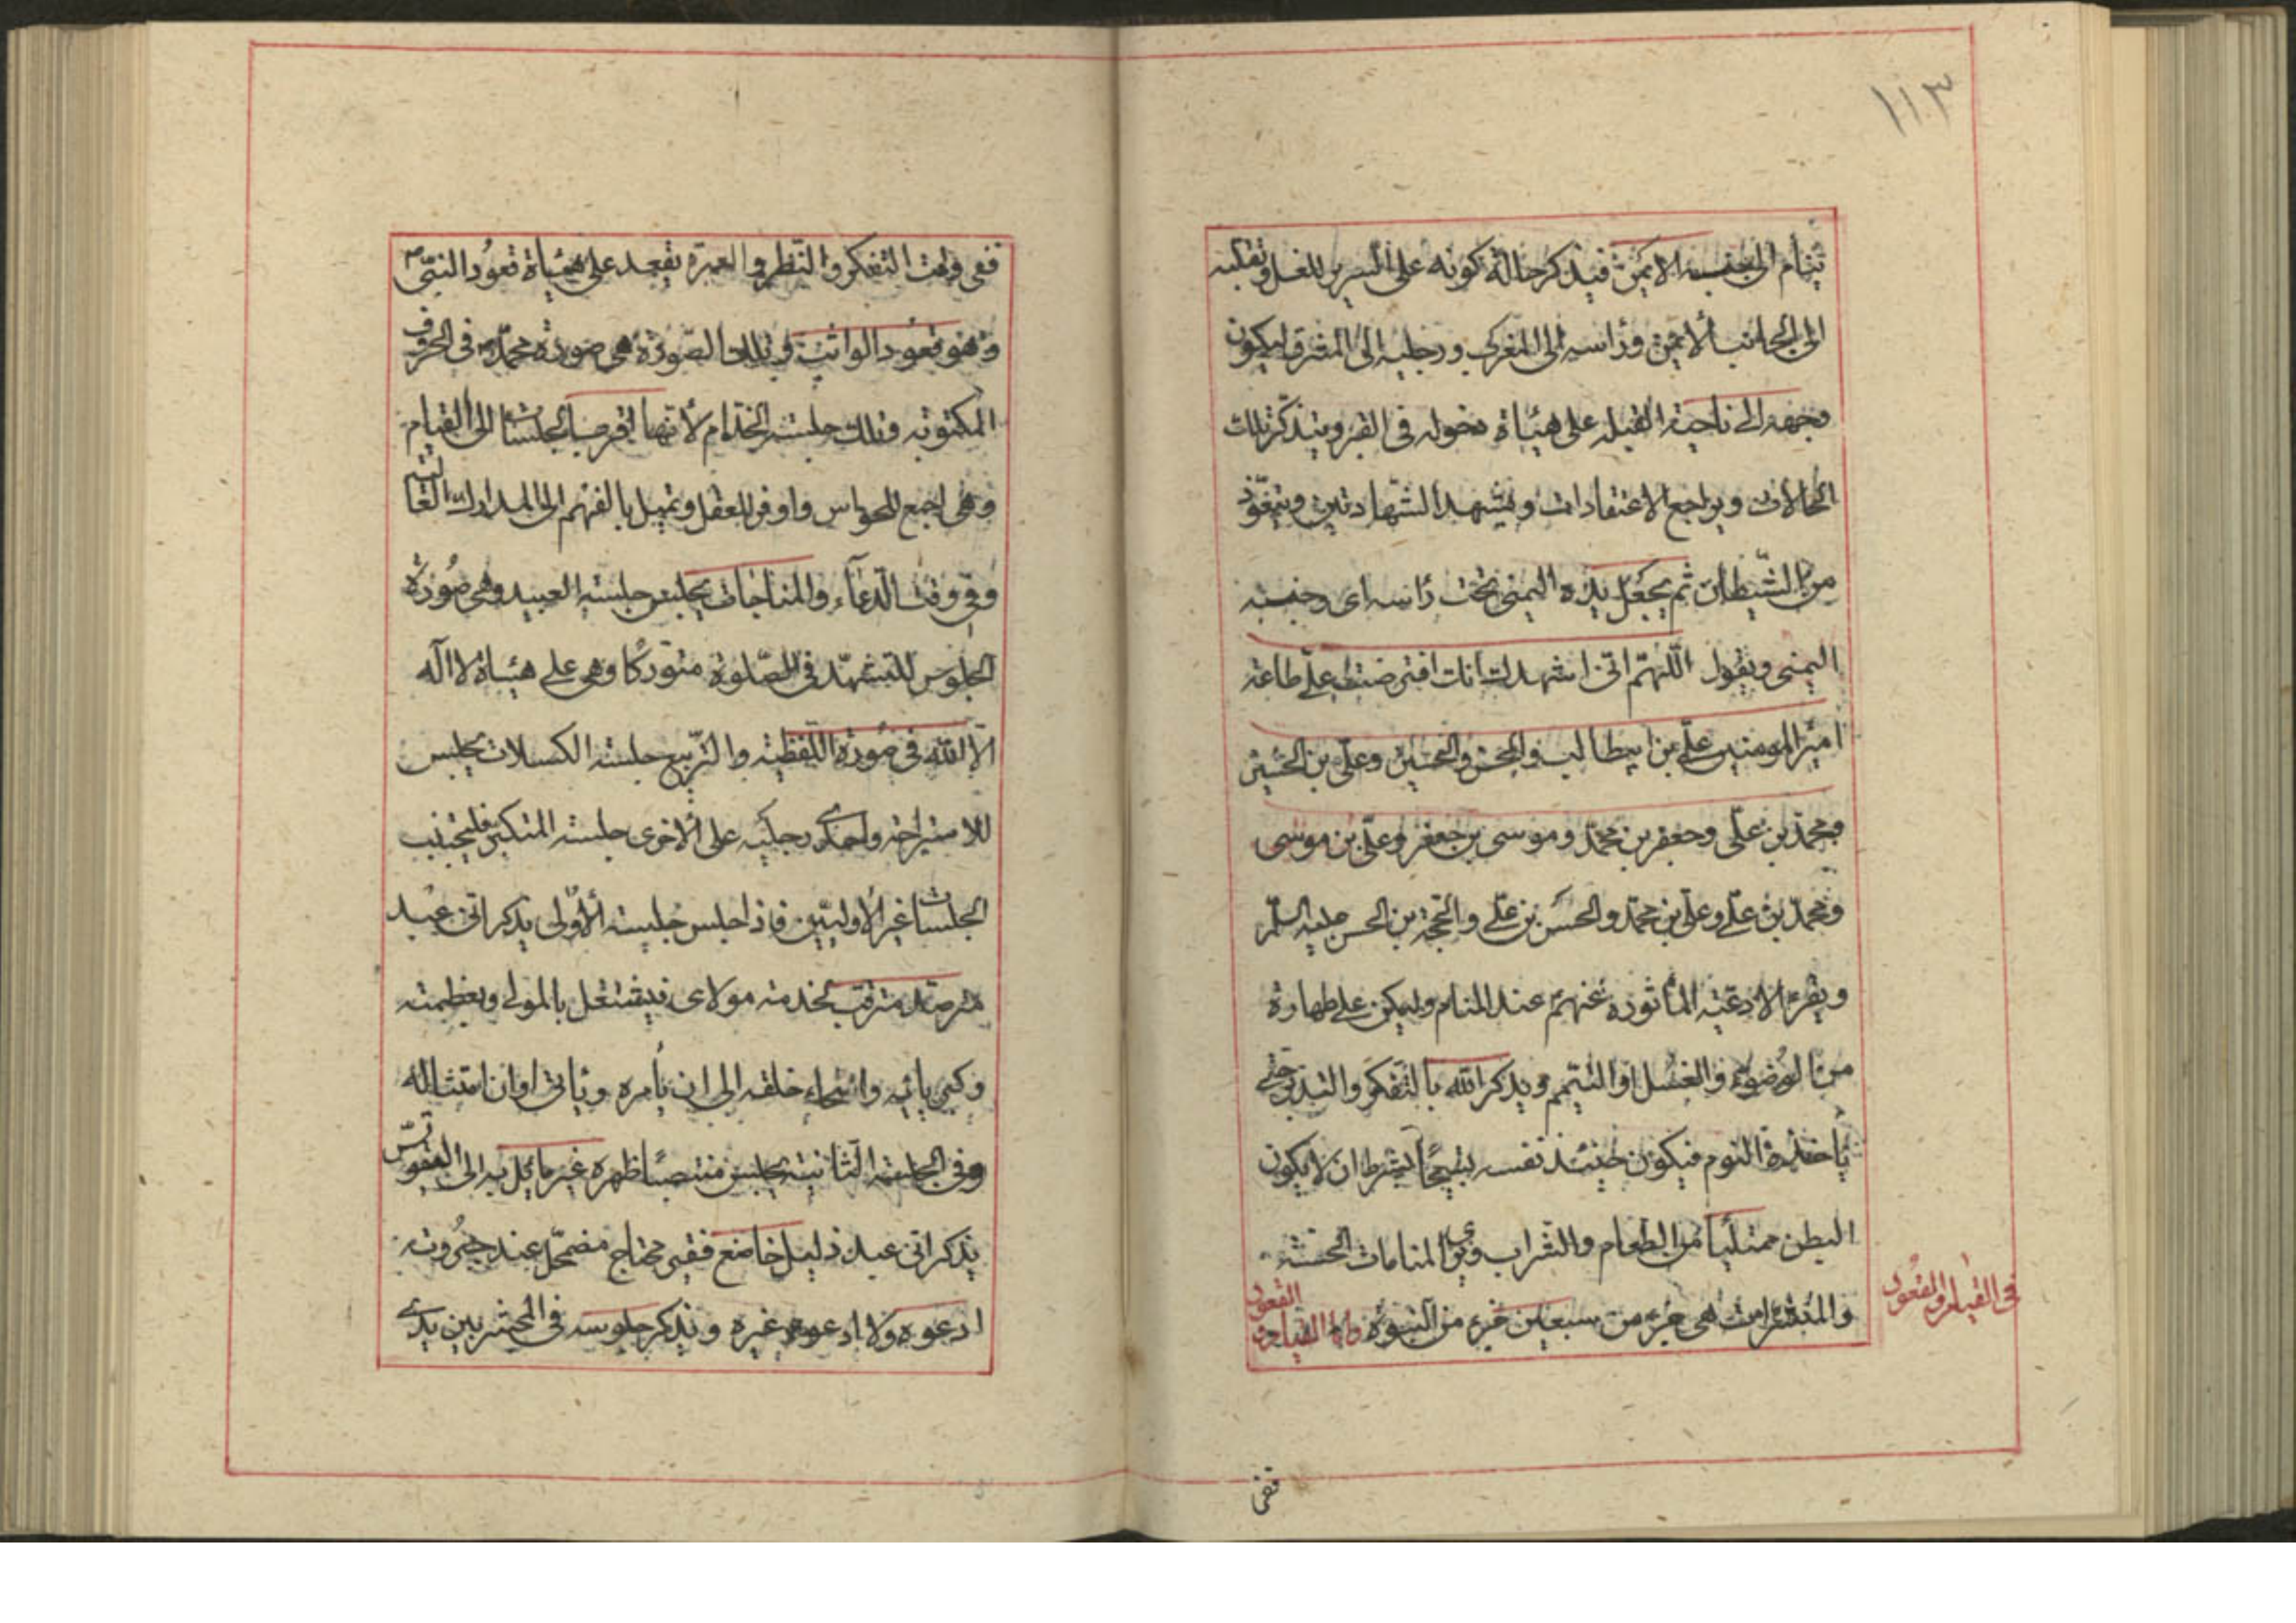 ١١٣
ينام الى جنبه الايمن فيذكر حالة كونه على السرير للغسل وتقلبه
الى الجانب الايمن ورأسه الى المغرب ورجليه الى المشرق ليكون
وجهه الى ناحية القبله على هيئاة دخوله فى القبر ويتذكر تلك
الحالات ويراجع الاعتقادات ويتشهد الشهادتين ويتعوّذ
من الشيطان ثم يجعل يده اليمنى تحت رأسه اى وجنبته
اليمنى ويقول اللّهمّ انى اشهدك انك افترضت علىّ طاعة
امير المومنين علّى بن ابيطالب والحسن والحسين وعلّى بن الحسين
ومحمّد بن علّى وجعفر بن محمّد وموسى بن جعفر وعلّى بن موسى
ومحمّد بن علّى وعلّى بن محمّد والحسن بن علّى والحجة بن الحسن عليه السلم
ويقرء الادعيّة المأثوره عنهم عند المنام وليكن على طهارة
من الوضوء والغسل او التيّمم ويذكر الله بالتفكر والتدبر حتى
يأخذه النوم فيكون حينئذ نفسه تسبيحًا بشرط ان لا يكون
البطن ممتلئًا من الطعام والشراب ويرى المنامات الحسنة
والمبشرات هى جزء من سبعين جزء من النبوة واما القيام و القعود
فى القيام والقعود
ففى
ففى وقت التفكر والنّظر والعبرة يقعد على هيئاة قعود النبىّ ص
وهو قعود الواثب و تلك الصّورة هى صورة محمّد ص فى الحروف
المكتوبه وتلك جلسة الخدام لأنّها اقرب الجلسات الى القيام
وهى اجمع للحواس واوفر للعقل وتميل بالفهم الى المدارك العالية
وفى وقت الدّعآء والمناجات يجلس جلسة العبيد وهى صورة
الجلوس للتشهّد فى الصّلوة متورّكا وهى على هيئاة لا اله
الّا الله فى صورة اللّفظية والتّربيع جلسة الكسلان يجلس
للاستراحة واحدى رجليه على الاخرى جلسة المتكبر فليجتنب
الجلسات غير الاوليّين فاذا جلس جليسة الاولى يذكر انّى عبد
مترصّد مترقب لخدمة مولاى فيشتغل بالمولى وبعظمته
وكبريائه واسماء خلقه الى ان يأمره ويأتى اوان امتثاله
وفى الجلسة الثّانية يجلس منتصبًا ظهره غير مائل به الى التقوس
يذكر انّى عبد ذليل خاضع فقير محتاج مضمحّل عند جبروته
ادعوه ولا ادعو غيره ويذكر جلوسه فى المحشر بين يدى